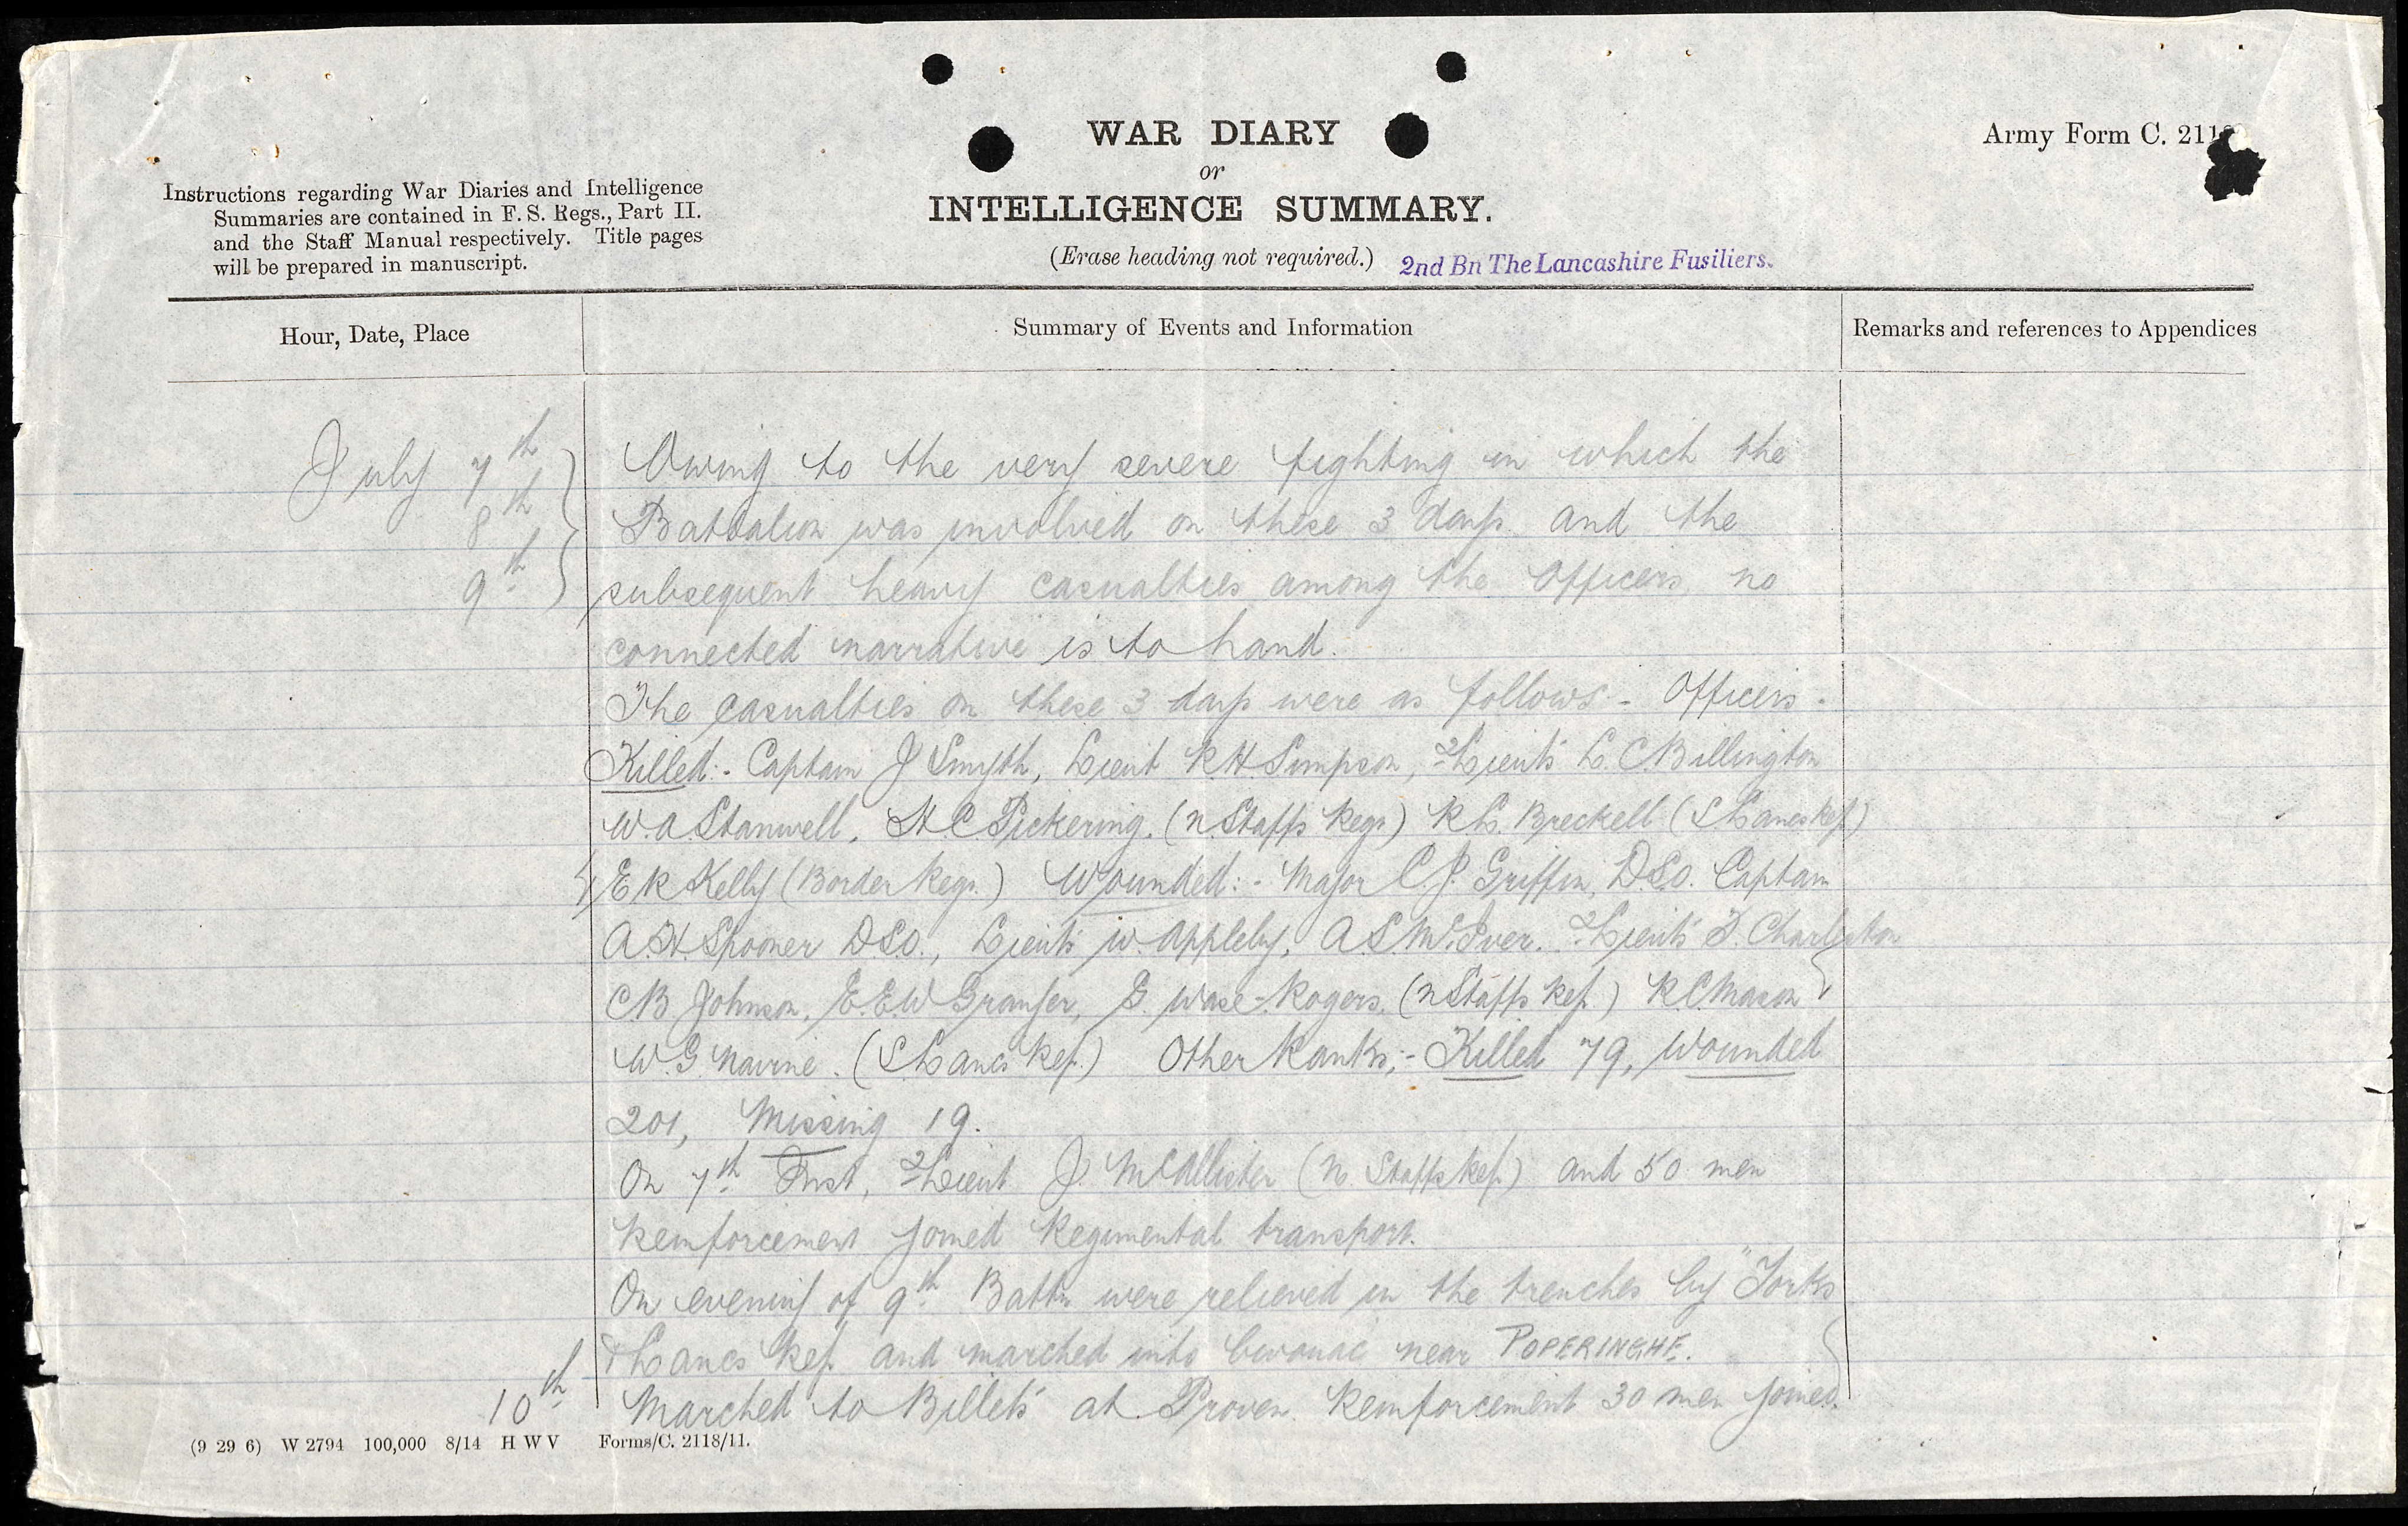 WAR DIARY
or
INTELLIGENCE SUMMARY.
(Erase heading not required.)
2nd Bn The Lancashire Fusiliers.
Army Form C. 211
Instructions regarding War Diaries and Intelligence
Summaries are contained in F. S. Regs., Part II.
and the Staff Manual respectively. Title pages
will be prepared in manuscript.
Hour, Date, Place
Summary of Events and Information
Remarks and references to Appendices
July 7th
8th
9th
Owing to the very severe fighting in which the
Battalion was involved on these 3 days and the
subsequent heavy casualties among the Officers, no
connected narrative is to hand.
The casualties on these 3 days were as follows:- Officers -
Killed:- Captain J Smyth, Lieut R.H. Simpson, 2Lieuts L. C. Billington
W.A Stanwell, H C Pickering. (N. Staffs Regt) R L. Breckell (S Lancs Regt)
E R Kelly (Border Regt.) Wounded:- Major C. J. Griffin, D.S.O. Captain
A.H. Spooner D.S.O., Lieuts W. Appleby, A.S. McIver. 2Lieuts Charleston
C B Johnson, E.E.W Granger, Wase-Rogers, (N Staffs Regt.) R.C. Mason
W. G Navine. (S. Lancs Regt.) Other Ranks:- Killed 79, Wounded
201, Missing 19.
On 7th Inst, 2Lieut J. McAllister (N. Staffs Regt) and 50 men
Reinforcement joined Regimental transport.
On evening of 9th Battn were relieved in the trenches by Yorks
& Lancs Regt and marched into bivouac near POPERINGHE.
10th
Marched to Billets at Proven. Reinforcement 30 men joined.
(9 29 6) W 2794 100,000 8/14 H W V Forms/C. 2118/11.